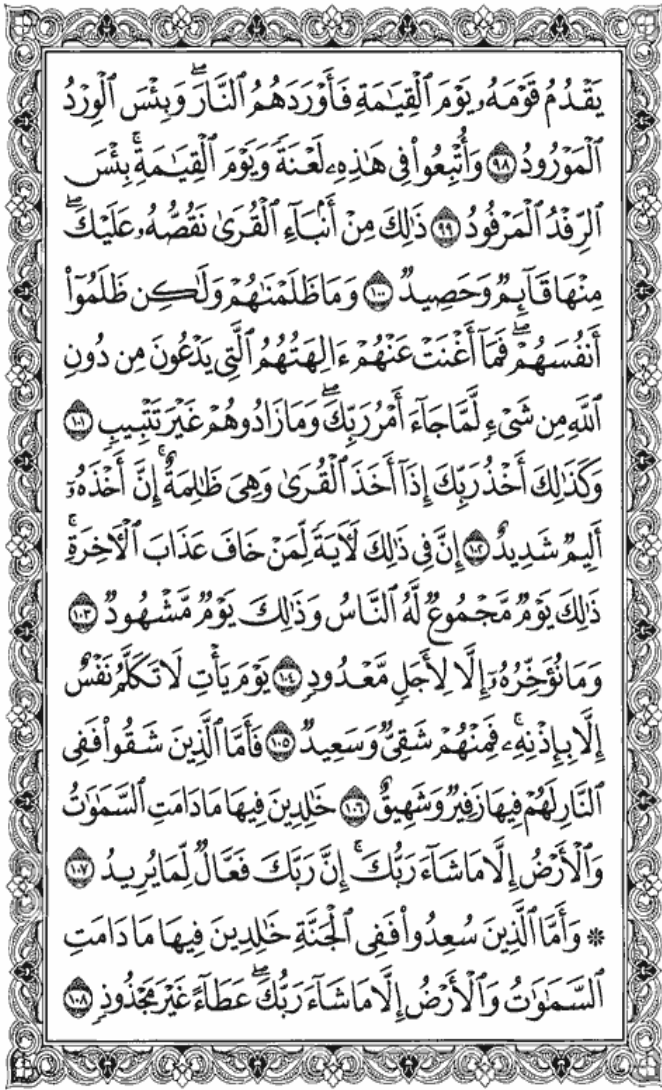 يَقْدُمُ قَوْمَهُۥ يَوْمَ ٱلْقِيَـٰمَةِ فَأَوْرَدَهُمُ ٱلنَّارَ ۖ وَبِئْسَ ٱلْوِرْدُ
ٱلْمَوْرُودُ ٩٨ وَأُتْبِعُوا۟ فِى هَـٰذِهِۦ لَعْنَةً وَيَوْمَ ٱلْقِيَـٰمَةِ ۚ بِئْسَ
ٱلرِّفْدُ ٱلْمَرْفُودُ ٩٩ ذَٰلِكَ مِنْ أَنۢبَآءِ ٱلْقُرَىٰ نَقُصُّهُۥ عَلَيْكَ ۖ
مِنْهَا قَآئِمٌ وَحَصِيدٌ ١٠٠ وَمَا ظَلَمْنَـٰهُمْ وَلَـٰكِن ظَلَمُوٓا۟
أَنفُسَهُمْ ۖ فَمَآ أَغْنَتْ عَنْهُمْ ءَالِهَتُهُمُ ٱلَّتِى يَدْعُونَ مِن دُونِ
ٱللَّهِ مِن شَىْءٍ لَّمَّا جَآءَ أَمْرُ رَبِّكَ ۖ وَمَا زَادُوهُمْ غَيْرَ تَتْبِيبٍ ١٠١
وَكَذَٰلِكَ أَخْذُ رَبِّكَ إِذَآ أَخَذَ ٱلْقُرَىٰ وَهِىَ ظَـٰلِمَةٌ ۚ إِنَّ أَخْذَهُۥٓ
أَلِيمٌ شَدِيدٌ ١٠٢ إِنَّ فِى ذَٰلِكَ لَـَٔايَةً لِّمَنْ خَافَ عَذَابَ ٱلْـَٔاخِرَةِ ۚ
ذَٰلِكَ يَوْمٌ مَّجْمُوعٌ لَّهُ ٱلنَّاسُ وَذَٰلِكَ يَوْمٌ مَّشْهُودٌ ١٠٣
وَمَا نُؤَخِّرُهُۥٓ إِلَّا لِأَجَلٍ مَّعْدُودٍ ١٠٤ يَوْمَ يَأْتِ لَا تَكَلَّمُ نَفْسٌ
إِلَّا بِإِذْنِهِۦ ۚ فَمِنْهُمْ شَقِىٌّ وَسَعِيدٌ ١٠٥ فَأَمَّا ٱلَّذِينَ شَقُوا۟ فَفِى
ٱلنَّارِ لَهُمْ فِيهَا زَفِيرٌ وَشَهِيقٌ ١٠٦ خَـٰلِدِينَ فِيهَا مَا دَامَتِ ٱلسَّمَـٰوَٰتُ
وَٱلْأَرْضُ إِلَّا مَا شَآءَ رَبُّكَ ۚ إِنَّ رَبَّكَ فَعَّالٌ لِّمَا يُرِيدُ ١٠٧
۞ وَأَمَّا ٱلَّذِينَ سُعِدُوا۟ فَفِى ٱلْجَنَّةِ خَـٰلِدِينَ فِيهَا مَا دَامَتِ
ٱلسَّمَـٰوَٰتُ وَٱلْأَرْضُ إِلَّا مَا شَآءَ رَبُّكَ ۖ عَطَآءً غَيْرَ مَجْذُوذٍ ١٠٨